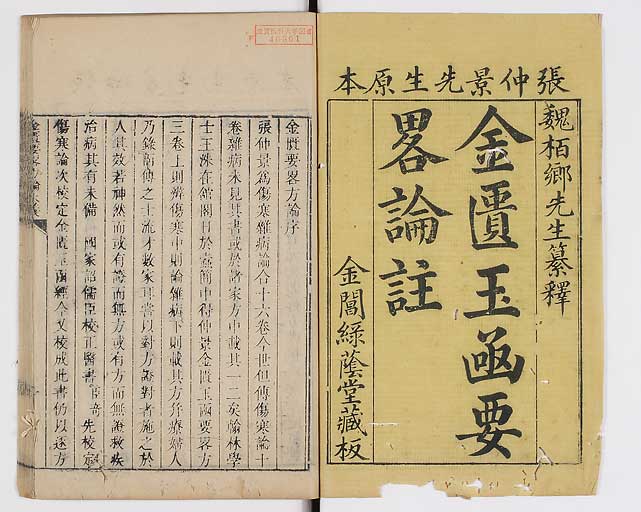 張仲景先生原本
魏栢鄉先生纂釋
金匱玉函要
畧論註
金閶綠蔭堂藏板
金匱要畧方論序
張仲景為傷寒雜病論合十六卷今世但傳傷寒論十
卷雜病未見其書或於諸家方中載其一二矣翰林學
士王洙在館閣日於蠹簡中得仲景金匱玉函要畧方
三卷上則辨傷寒中則論雜病下則載其方并療婦人
乃錄而傳之士流才數家耳嘗以對方證對者施之於
人其效若神然而或有證而無方或有方而無證救疾
治病其有未備 國家詔儒臣校正醫書臣奇先校定
傷寒論次校定金匱玉函經今又校成此書仍以逐方